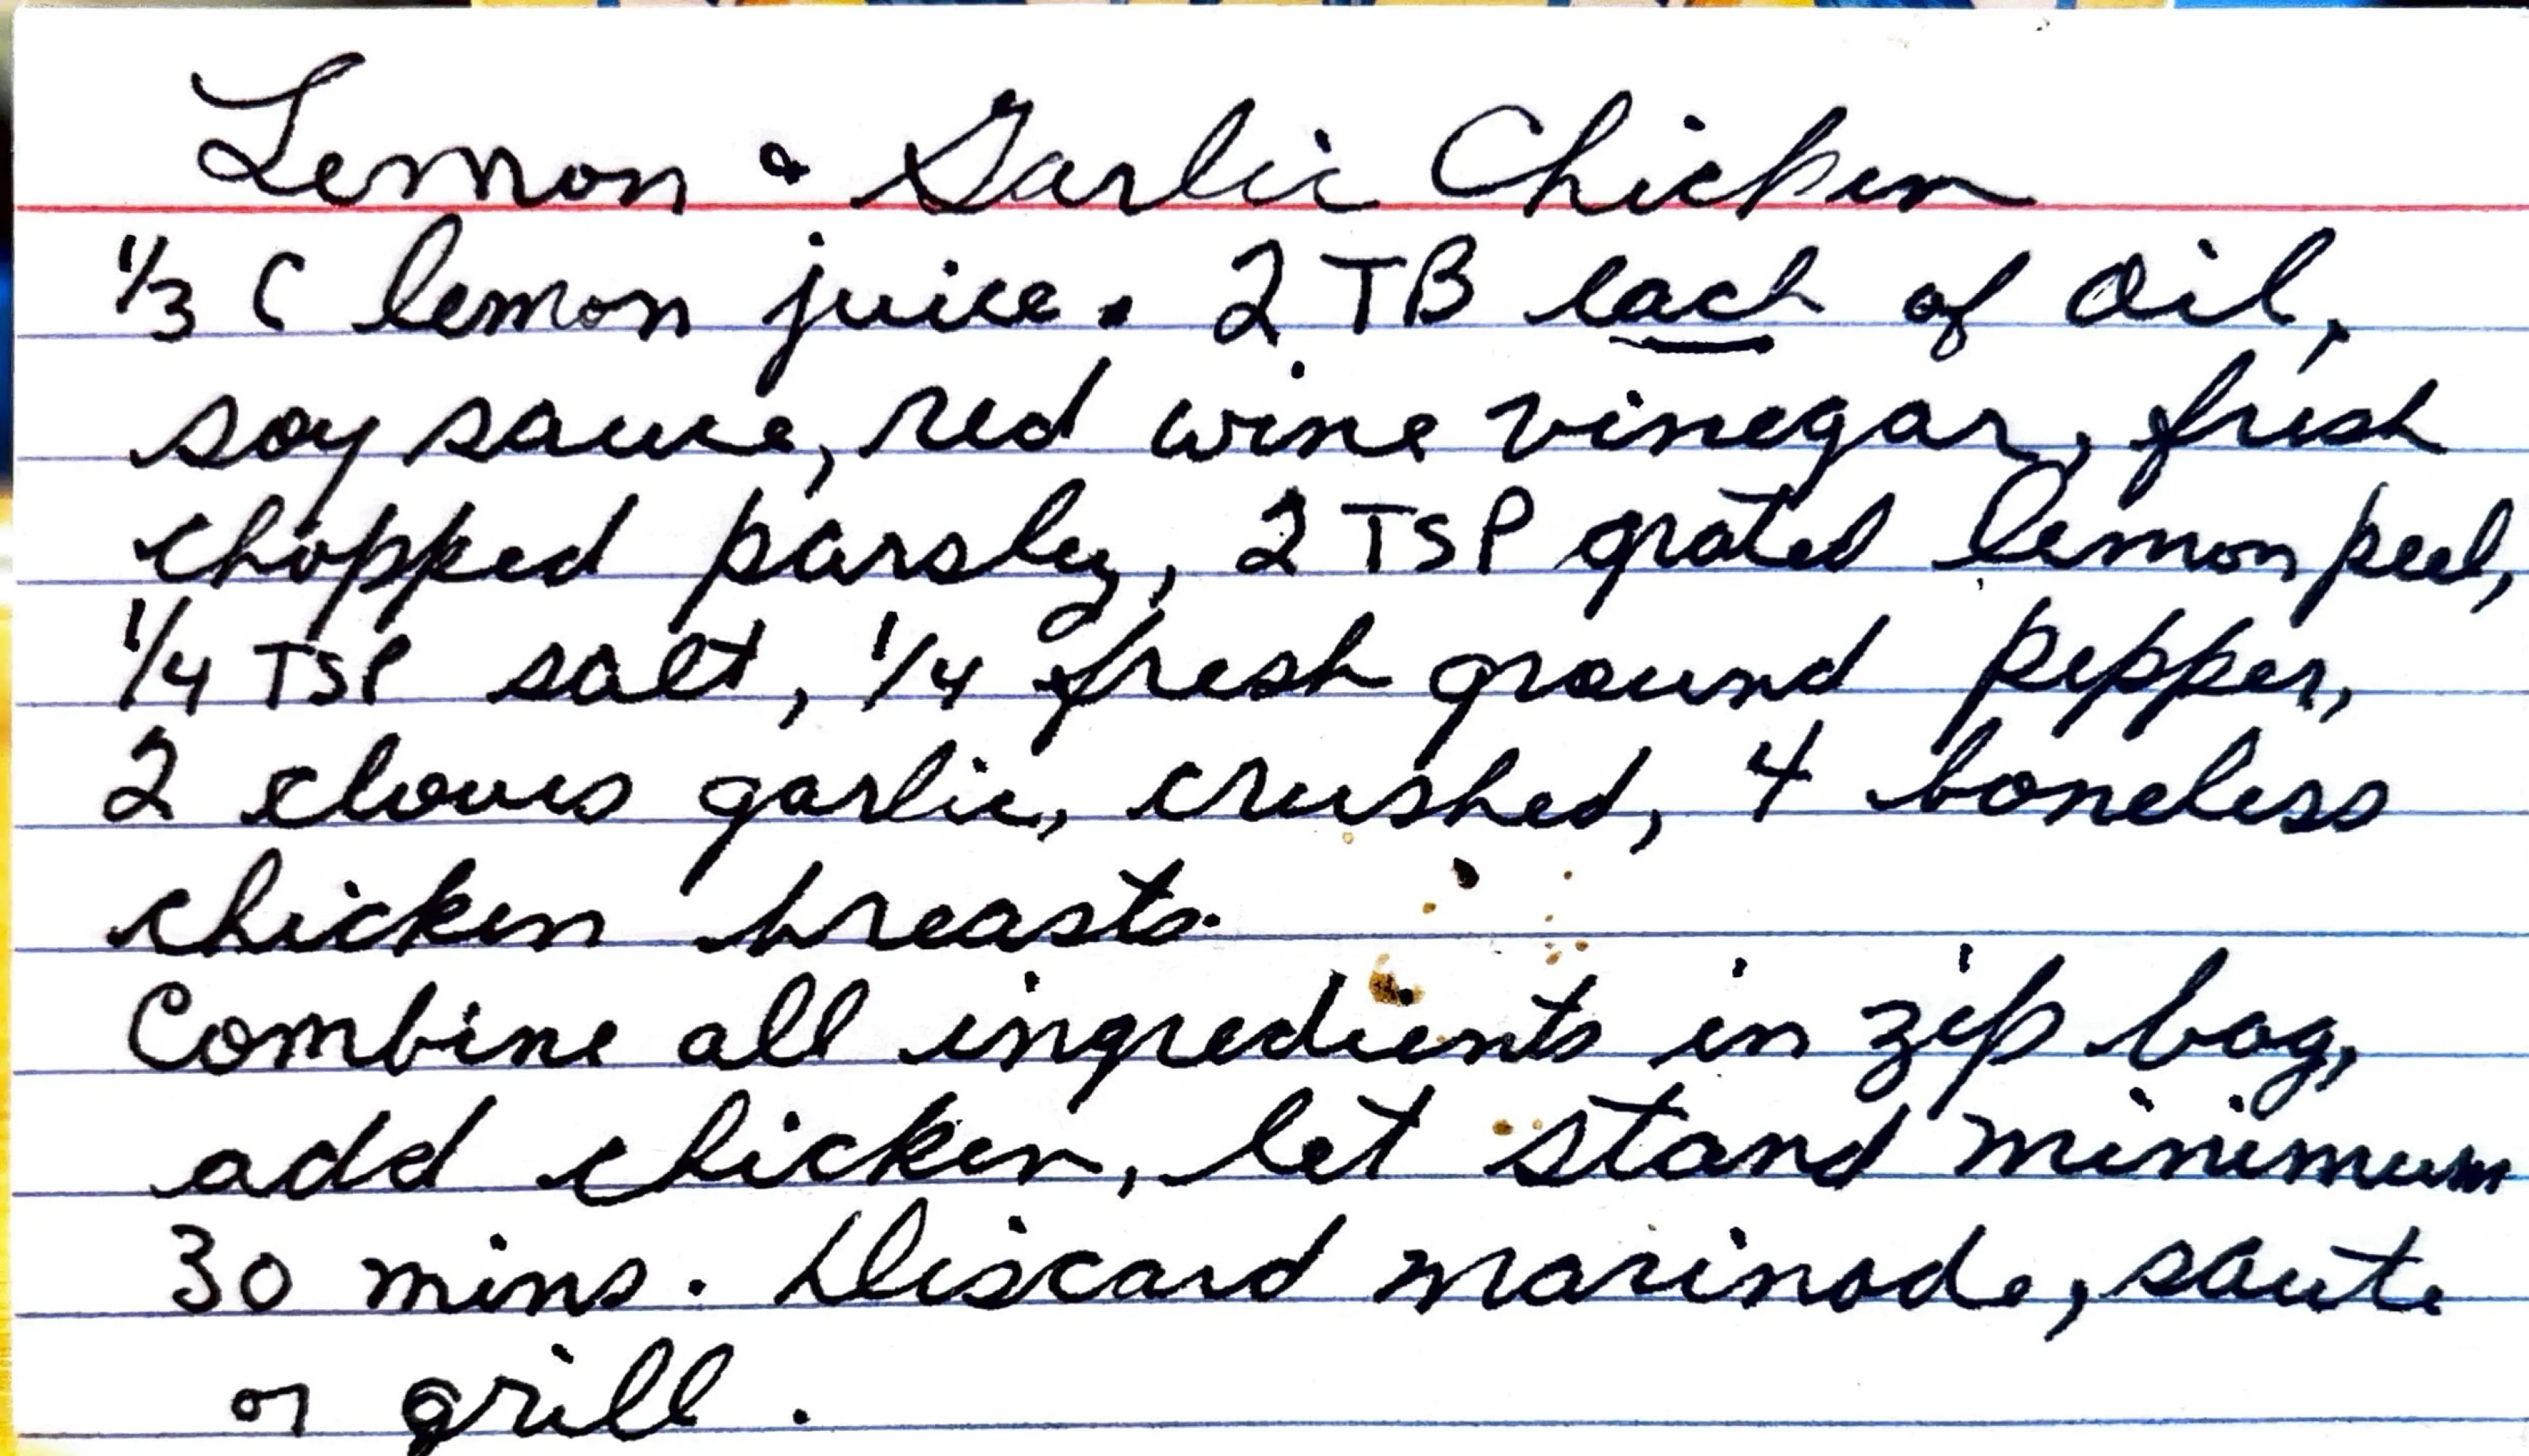 Lemon & Garlic Chicken
1/3 C lemon juice. 2 TB each of oil,
soy sauce, red wine vinegar, fresh
chopped parsley, 2 TSP grated lemon peel,
1/4 TSP salt, 1/4 fresh ground pepper,
2 cloves garlic, crushed, 4 boneless
chicken breasts.
Combine all ingredients in zip bag,
add chicken, let stand minimum
30 mins. Discard marinade, saute
or grill.